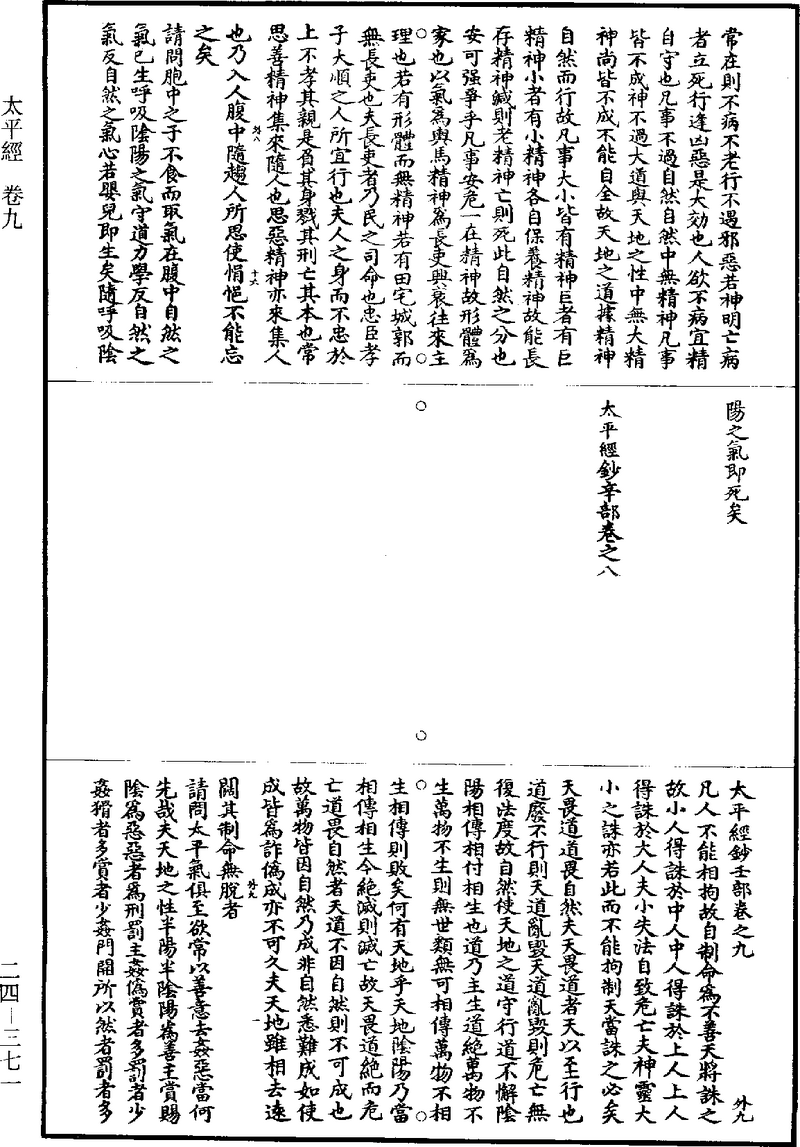 太平經 卷九
二四—三七一
常在則不病不老行不遇邪惡若神明亡病
者立死行逢凶惡是大効也人欲不病宜精
自守也凡事不過自然自然中無精神凡事
皆不成神不過大道與天地之性中無大精
神尚皆不成不能自全故天地之道據精神
自然而行故凡事大小皆有精神巨者有巨
精神小者有小精神各自保養精神故能長
存精神減則老精神亡則死此自然之分也
安可强爭乎凡事安危一在精神故形體為
家也以氣為輿馬精神為長吏興衰往來主
理也若有形體而無精神若有田宅城郭而
無長吏也夫長吏者乃民之司命也忠臣孝
子大順之人所宜行也夫人之身而不忠於
上不孝其親是負其身戮其刑亡其本也常
思善精神集來隨人也思惡精神亦來集人
外八
十六
也乃入人腹中隨趨人所思使悁悒不能忘
之矣
請問胞中之子不食而取氣在腹中自然之
氣已生呼吸陰陽之氣守道力學反自然之
氣反自然之氣心若嬰兒即生矣隨呼吸陰
陽之氣即死矣
太平經鈔辛部卷之八
太平經鈔壬部卷之九
外九
凡人不能相拘故自制命為不善天將誅之
故小人得誅於中人中人得誅於上人上人
得誅於大人夫小失法自致危亡夫神靈大
小之誅亦若此而不能拘制天當誅之必矣
天畏道道畏自然夫天畏道者天以至行也
道廢不行則天道亂毀天道亂毀則危亡無
復法度故自然使天地之道守行道不懈陰
陽相傳相付相生也道乃主生道絕萬物不
生萬物不生則無世類無可相傳萬物不相
生相傳則敗矣何有天地乎天地陰陽乃當
相傳相生今絕滅則滅亡故天畏道絕而危
亡道畏自然者天道不因自然則不可成也
故萬物皆因自然乃成非自然悉難成如使
成皆為詐偽成亦不可久夫天地雖相去遠
外九
一
闊其制命無脫者
請問太平氣俱至欲常以善意去姦惡當何
先哉夫天地之性半陽半陰陽為善主賞賜
陰為惡惡者為刑罰主姦偽賞者多罰者少
姦猾者多賞者少姦門開所以然者罰者多